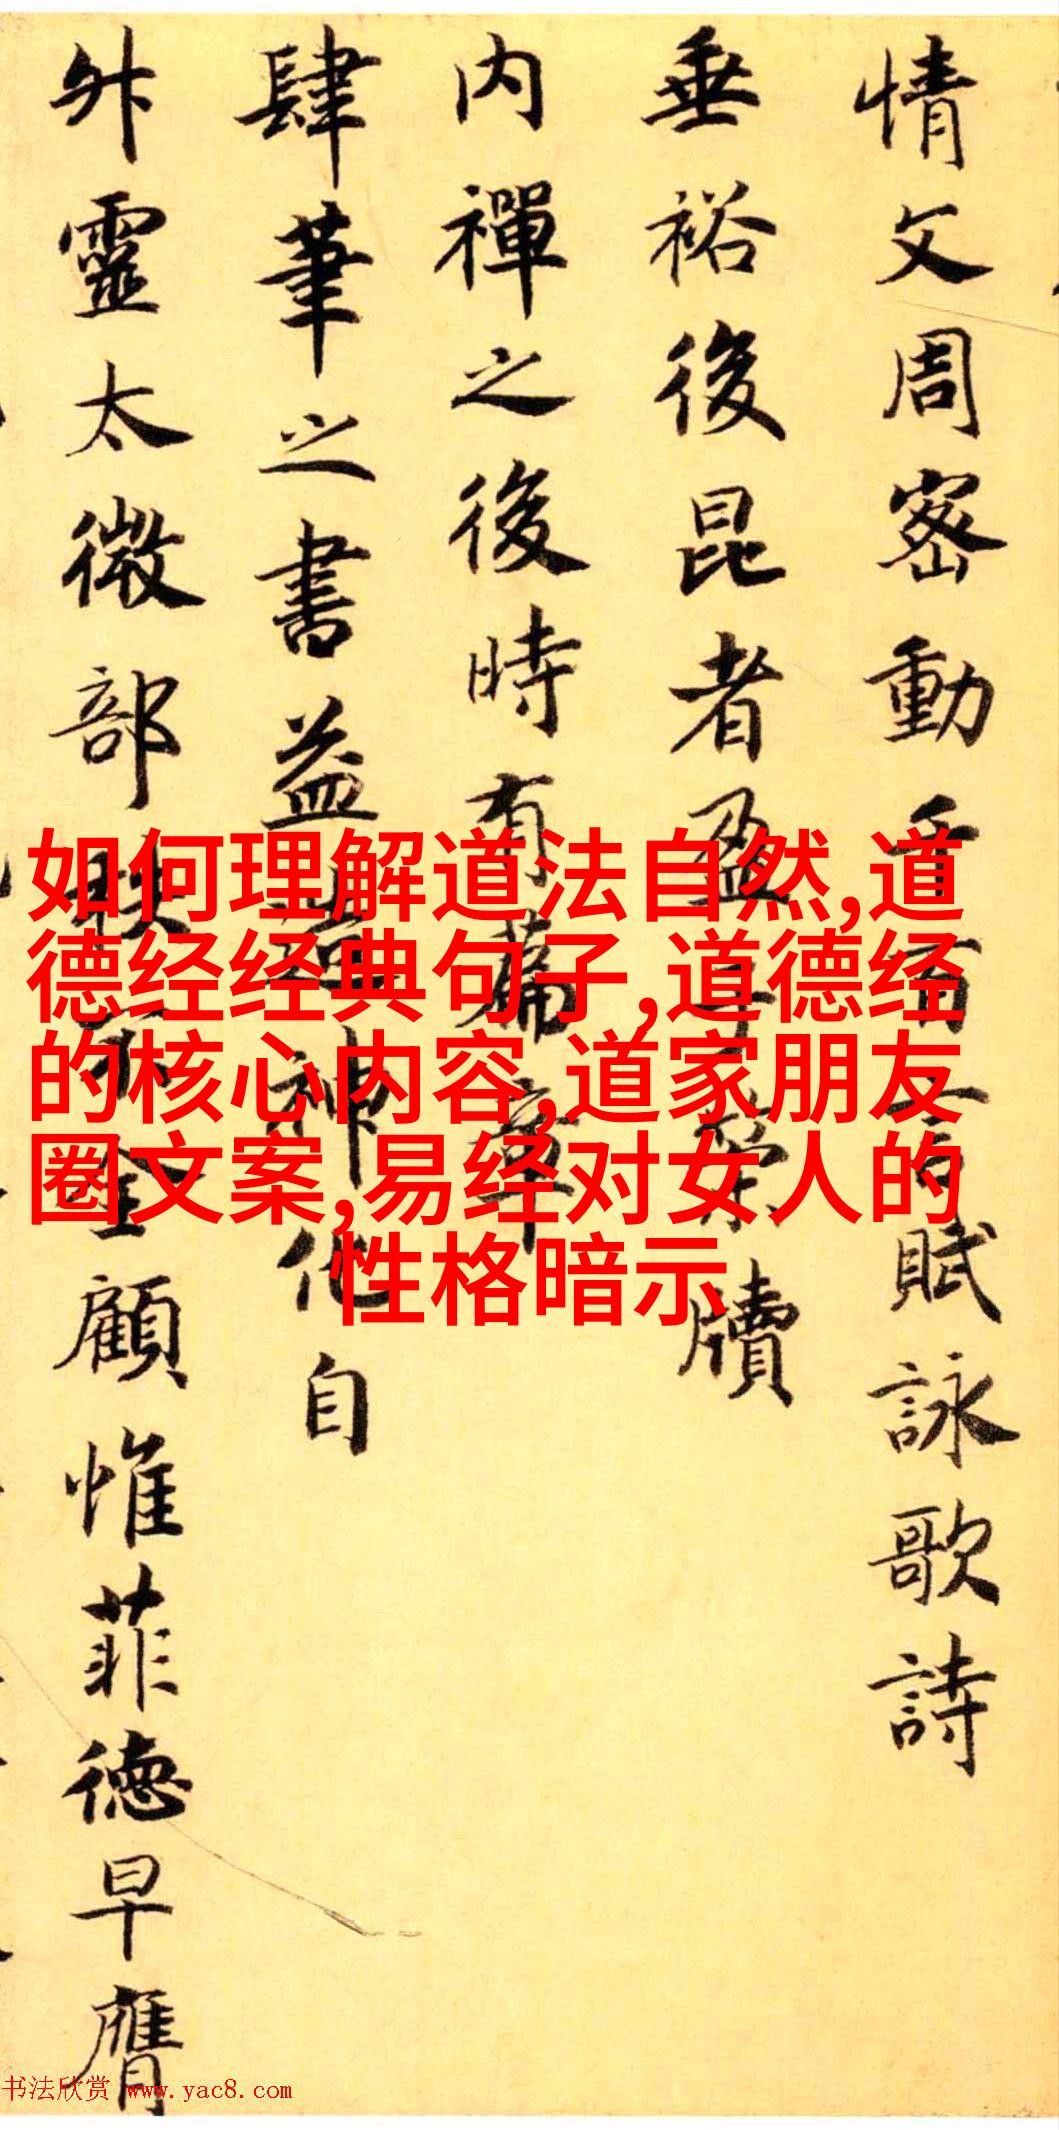 情文周密動千萬言賦詠歌詩
垂裕後昆者盈於策牘
内禪之後時有篇章
肆筆之書益造神化自
舛靈太微部秩天全顧惟菲德早膺
如何理解道法自然,道
德经经典句子,道德经
的核心内容,道家朋友
圈文案,易经对女人的
性格暗示
书法欣赏 www.yac8.com